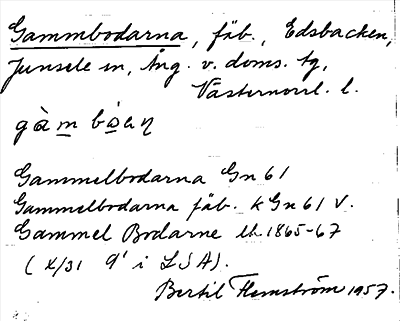 Gammbodarna, fäb., Edsbacken,
Junsele sn, Ång. v. doms. tg,
Västernorrl. l.
Gammelbodarna Gn 61
Gammelbodarna fäb. k Gn 61 V.
Gammel Bodarne 1865-67
(X/31 9¹ i LSA).
Bertil Flemström 1957.